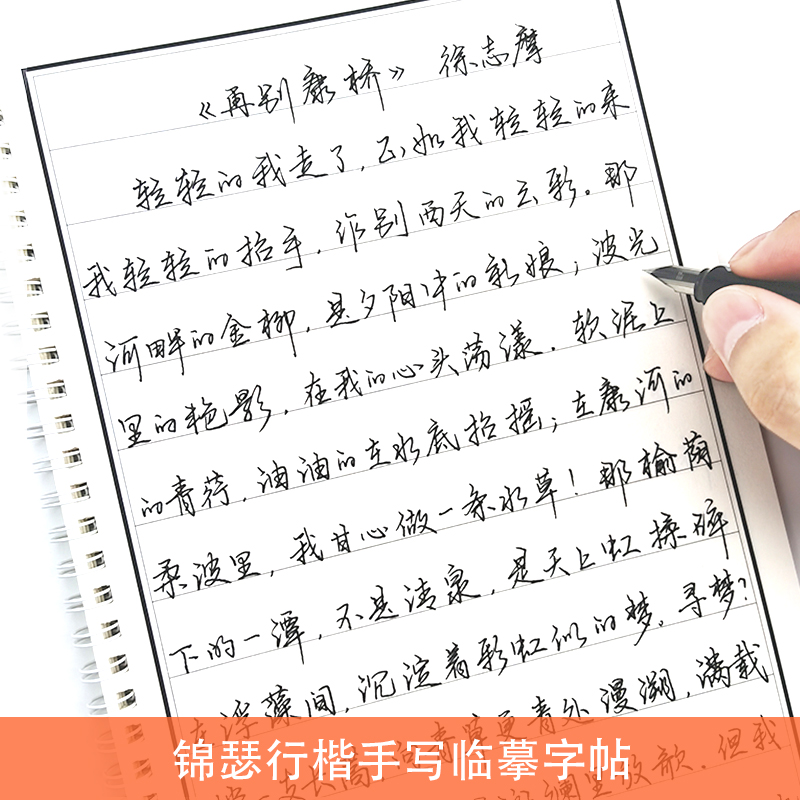 《再别康桥》 徐志摩
轻轻的我走了,正如我轻轻的来
我轻轻的招手,作别西天的云彩。那
河畔的金柳,是夕阳中的新娘;波光
里的艳影,在我的心头荡漾。软泥上
的青荇,油油的在水底招摇;在康河的
柔波里,我甘心做一条水草!那榆荫
下的一潭,不是清泉,是天上虹揉碎
在浮藻间,沉淀着彩虹似的梦。寻梦?
一支长篙,向青草更青处漫溯,满载
斓里放歌.但我
锦瑟行楷手写临摹字帖